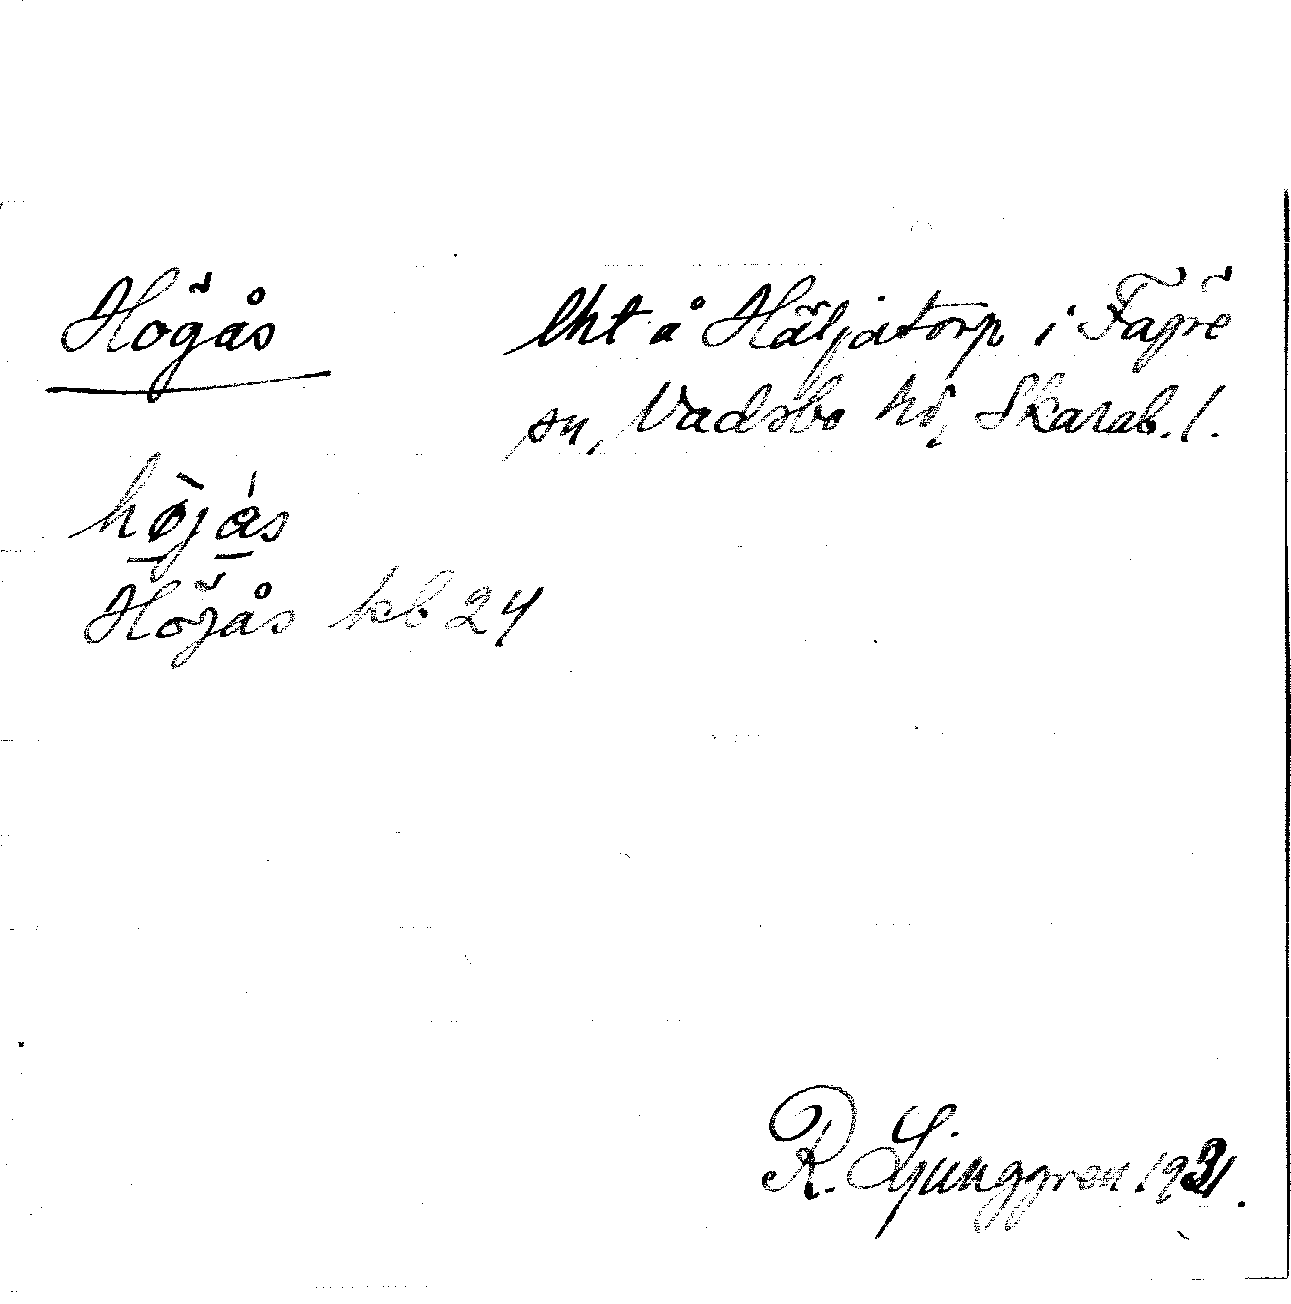 Högås lht å Häljatorp i Fägre
sn, Vadsbo hd, Skarab. l.
hö̀jás
Höjås kb 24
R. Ljunggren 1931.